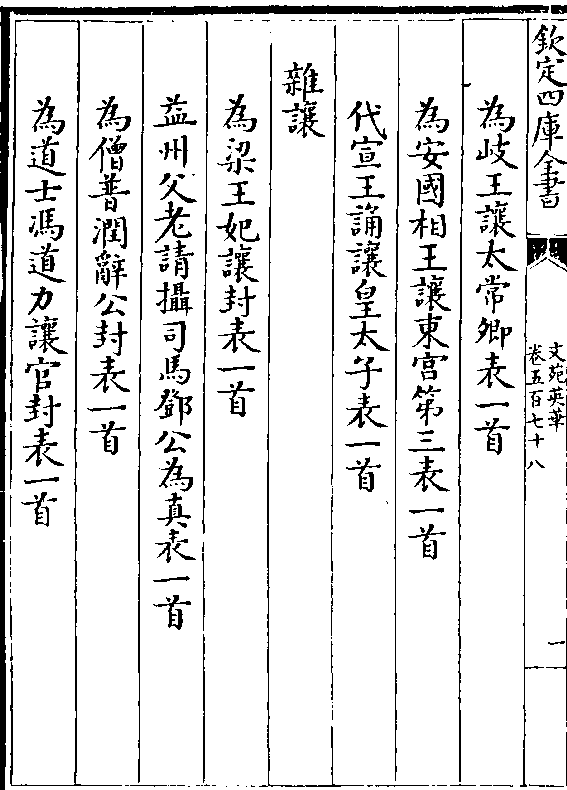 欽定四庫全書
文苑英華
卷五百七十八
一
為岐王讓太常卿表一首
為安國相王讓東宫第三表一首
代宣王誦讓皇太子表一首
雜讓
為梁王妃讓封表一首
益州父老請攝司馬鄧公為真表一首
為僧普潤辭公封表一首
為道士馮道力讓官封表一首